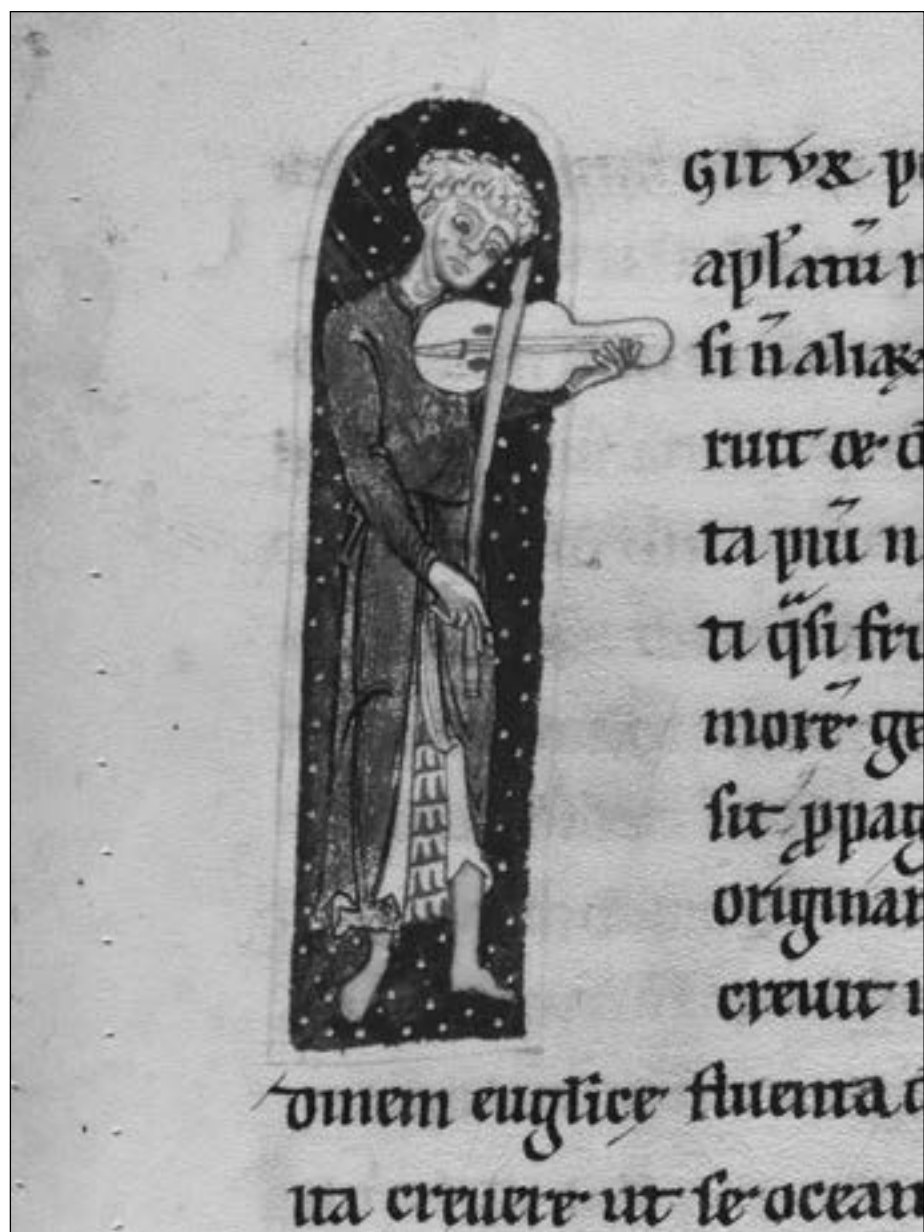 GITVR p
apłatū n
si ñ aliaꝝ
ruit ce d
ta piū n
ti q̄si fru
morē ge
sit ꝓpag
originar
crevit i
dinem euglice fluenta d
ita crevere ut se ocean